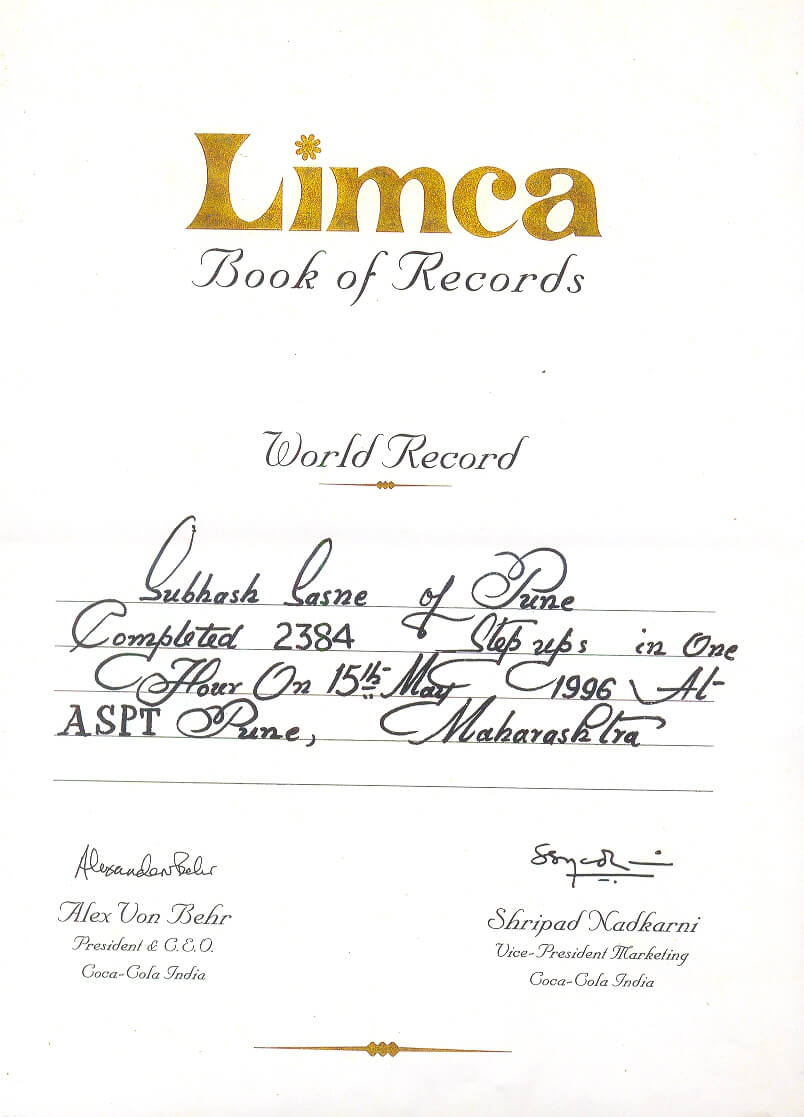 Limca
Book of Records
World Record
Subhash Sasne of Pune
Completed 2384 Step ups in One
Hour On 15th May 1996 At
ASPT Pune, Maharashtra
Alexander Behr
Alex Von Behr
President & C.E.O.
Coca-Cola India
Shripad Nadkarni
Vice-President Marketing
Coca-Cola India